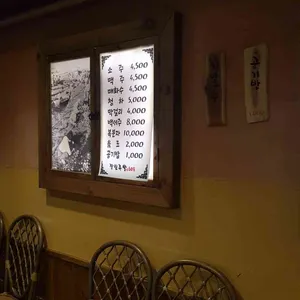 소주 4,500
맥주 4,500
매화수 4,500
청하 5,000
막걸리 4,000
백세주 8,000
복분자 10,000
음료 2,000
공기밥 1,000
공기밥